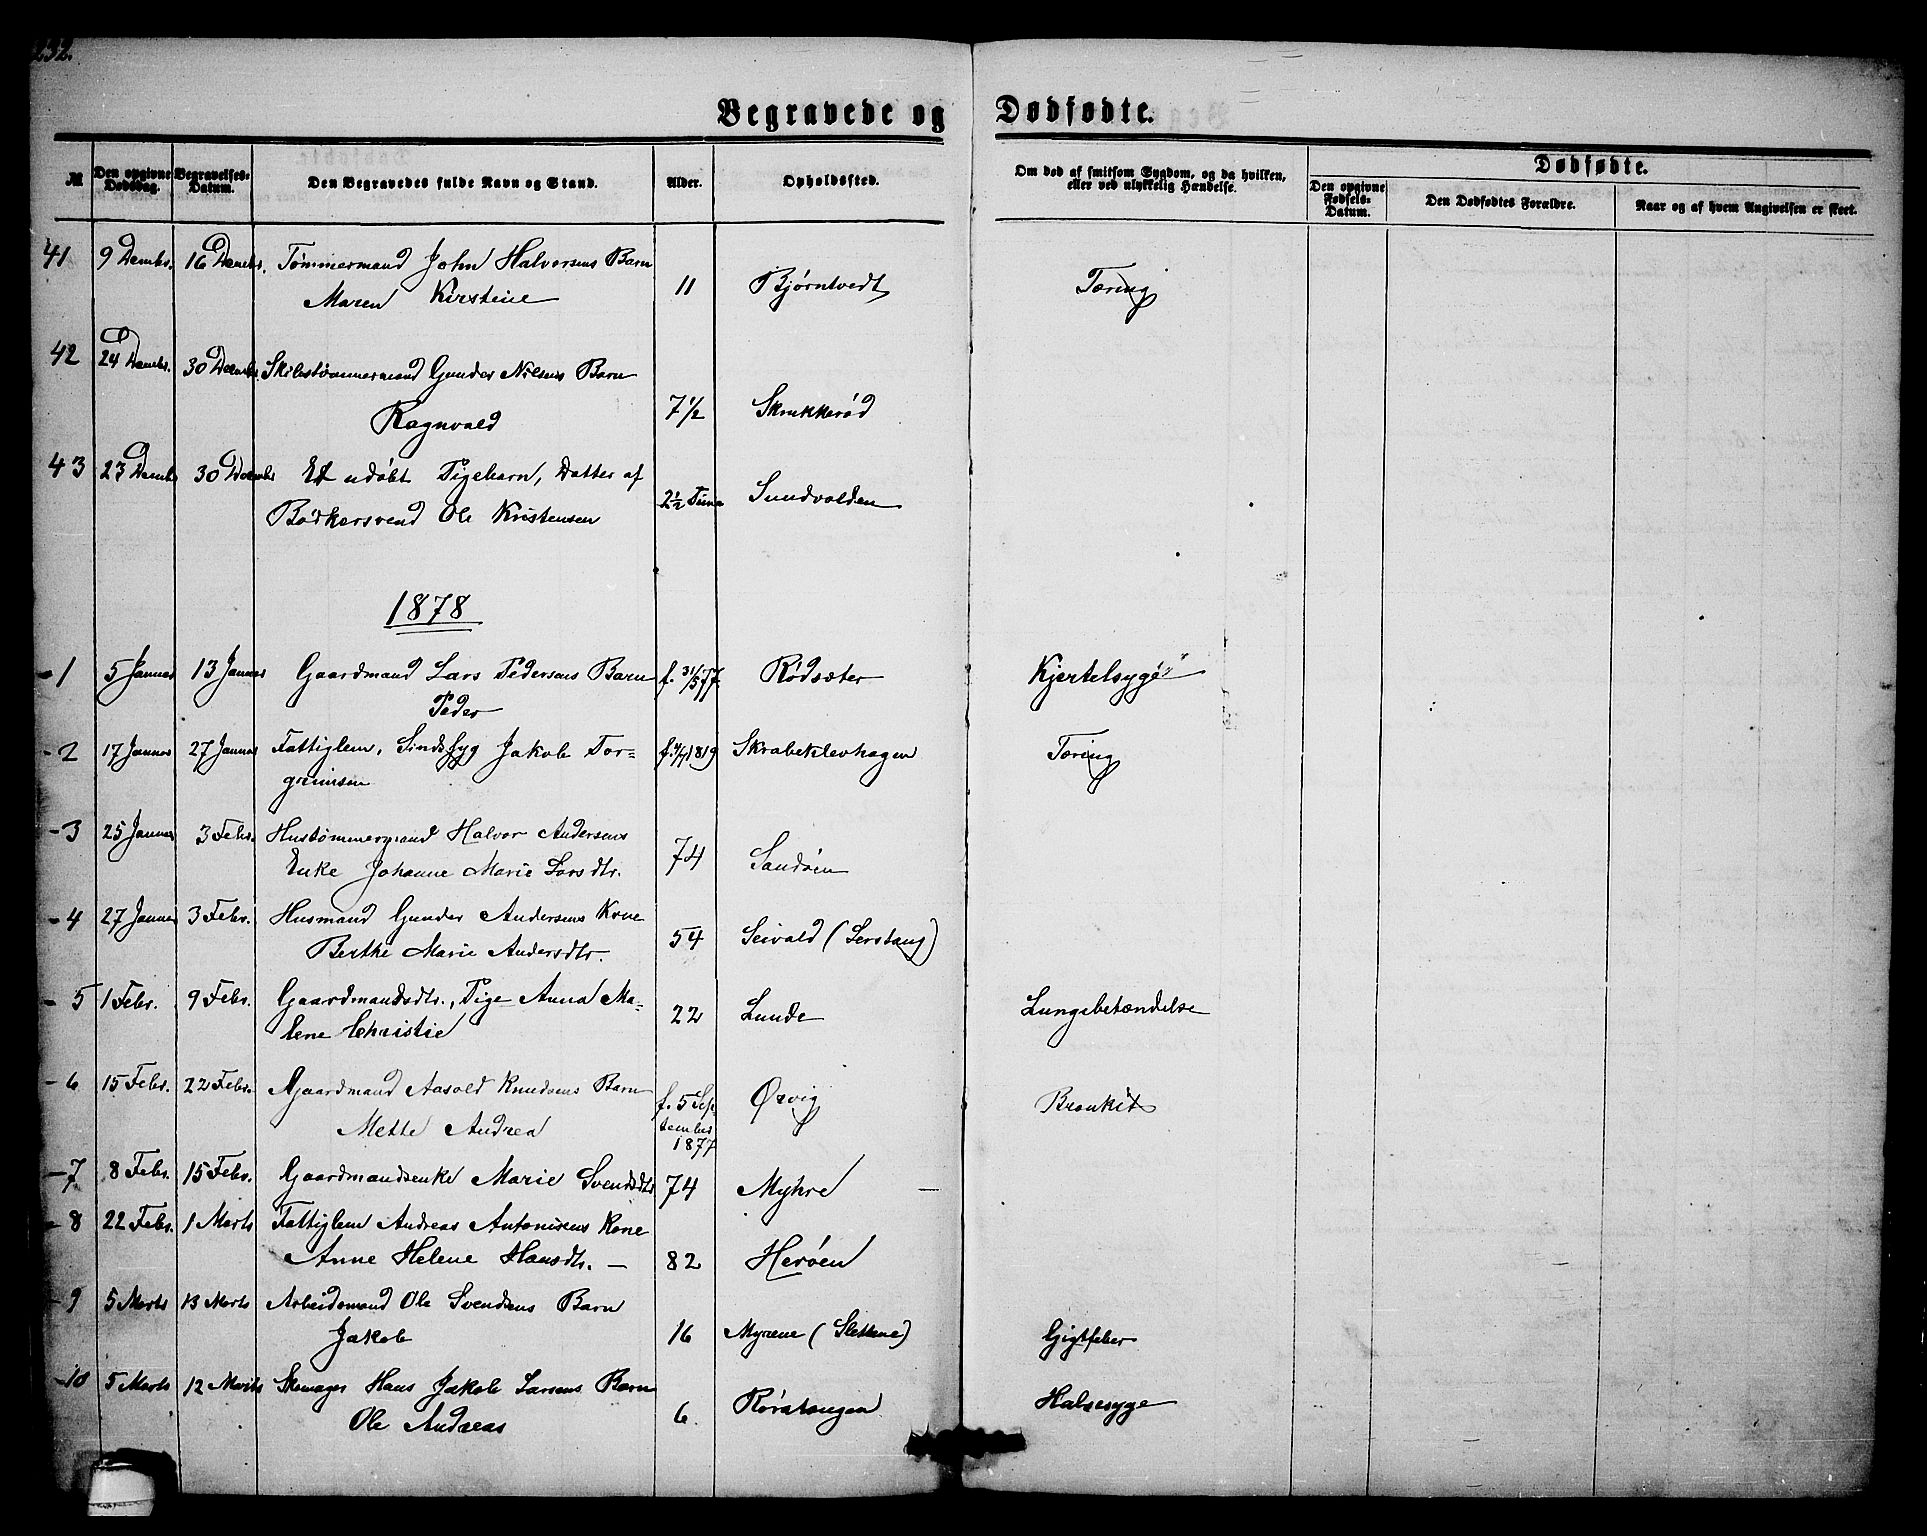 232.
Begravede og Dødfødte.
№ Den opgivne Dødsdag. Begravelses-Datum. Den Begravedes fulde Navn og Stand. Alder. Opholdssted. Om død af smitsom Sygdom, og da hvilken, eller ved ulykkelig Hændelse. Dødfødte.
Den opgivne Fødsels-Datum. Den Dødfødtes Forældre. Naar og af hvem Angivelsen er skeet.
41 9 Decmbr. 16 Decmbr. Tømmermand John Halvorsens Barn
Maren Kirstine 11 Bjørntvedt Tæring
42 24 Decmbr. 30 Decmbr Skibstømmermand Gunder Nilsens Barn
Ragnvald 7 1/2 Skrukkerød
43 23 Decmbr 30 Decmbr Et udøbt Pigebarn, Datter af
Bødkersvend Ole Kristensen 2 1/2 Time Sundvolden
1878
1 5 Januar 13 Januar Gaardmand Lars Pedersens Barn f. 31/5 77. Rødsæter Kjertelsyge
Peder
2 17 Januar 27 Januar Fattiglem, Sindssyg Jakob Tor-
grimsen 1819 Skrabeklevhagen Tæring
3 25 Januar 3 Febr. Hustømmermand Halvor Andersens
Enke Johanne Marie Larsdtr. 74 Sandøen
4 27 Januar 3 Febr. Husmand Gunder Andersens Kone
Berthe Marie Andersdtr. 54 Seivald (Serstang)
5 1 Febr. 9 Febr. Gaardmandsdtr., Pige Anna Ma-
lene Christie 22 Lunde Lungebetændelse
6 15 Febr. 22 Febr. Gaardmand Aasold Knudsens Barn
Mette Andrea f. 5 September 1877 Ørvig Bronkit
7 8 Febr. 15 Febr. Gaardmandsenke Marie Svendsdtr 74 Myhre
8 22 Febr. 1 Marts Fattiglem Andreas Antonisens Kone
Anne Helene Hansdtr. 82 Herøen
9 5 Marts 13 Marts Arbeidsmand Ole Svendsens Barn
Jakob 16 Myrene (Slettene) Gigtfeber
10 5 Marts 12 Marts Skomager Hans Jakob Larsens Barn
Ole Andreas 6. Rørstangen Halssyge